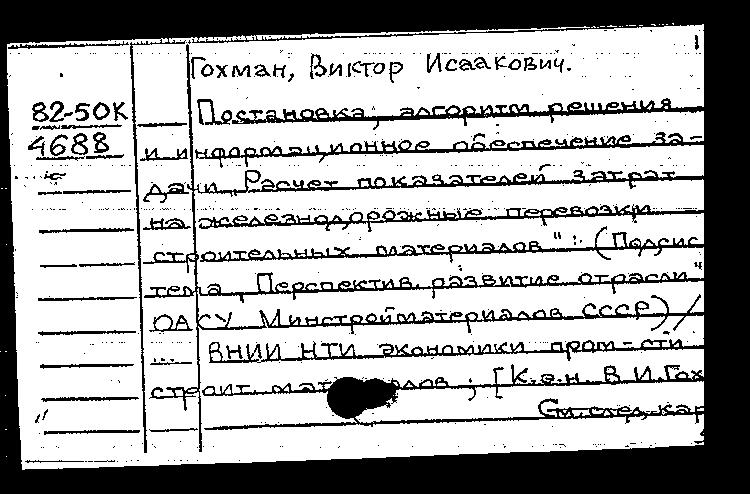 Гохман, Виктор Исаакович.
82-50К Постановка, алгоритм решения
4688 и информационное обеспечение за-
дачи „Расчет показателей затрат
на железнодорожные перевозки
строительных материалов": (Подсис
тема „Перспектив. развитие отрасли"
ОАСУ Минстройматериалов СССР) /
... ВНИИ НТИ экономики пром-сти
строит. мат лов ; [К.э.н. В.И.Гох
См.след.кар